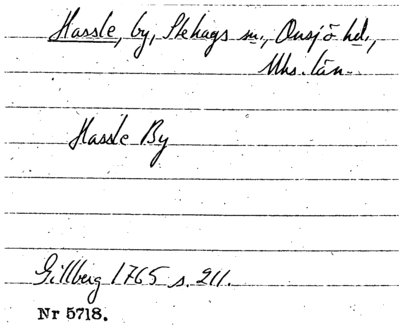 Hassle, by, Stehags sn., Onsjö hd.,
Mhs. län
Hassle By
Gillberg 1765 s. 211.
Nr 5718.